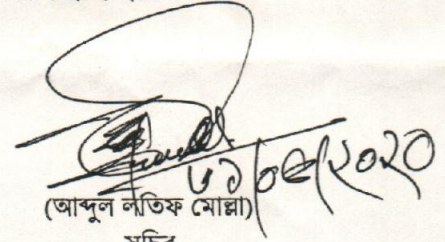 ৩১/০৫/২০২০
(আব্দুল লতিফ মোল্লা)
সচিব